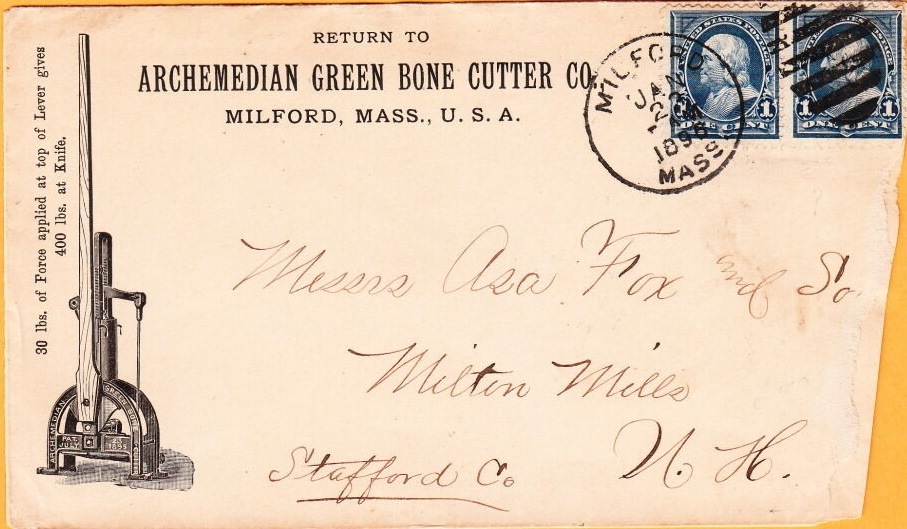 RETURN TO
ARCHEMEDIAN GREEN BONE CUTTER CO.
MILFORD, MASS., U. S. A.
30 lbs. of Force applied at top of Lever gives
400 lbs. at Knife.
UNITED STATES POSTAGE
1 1
ONE CENT
1 1
ONE CENT
MILFORD
JAN
MASS.
Messrs Asa Fox and So
Milton Mills
N. H.
Stafford Co
ARCHEMEDIAN
PAT.
JULY